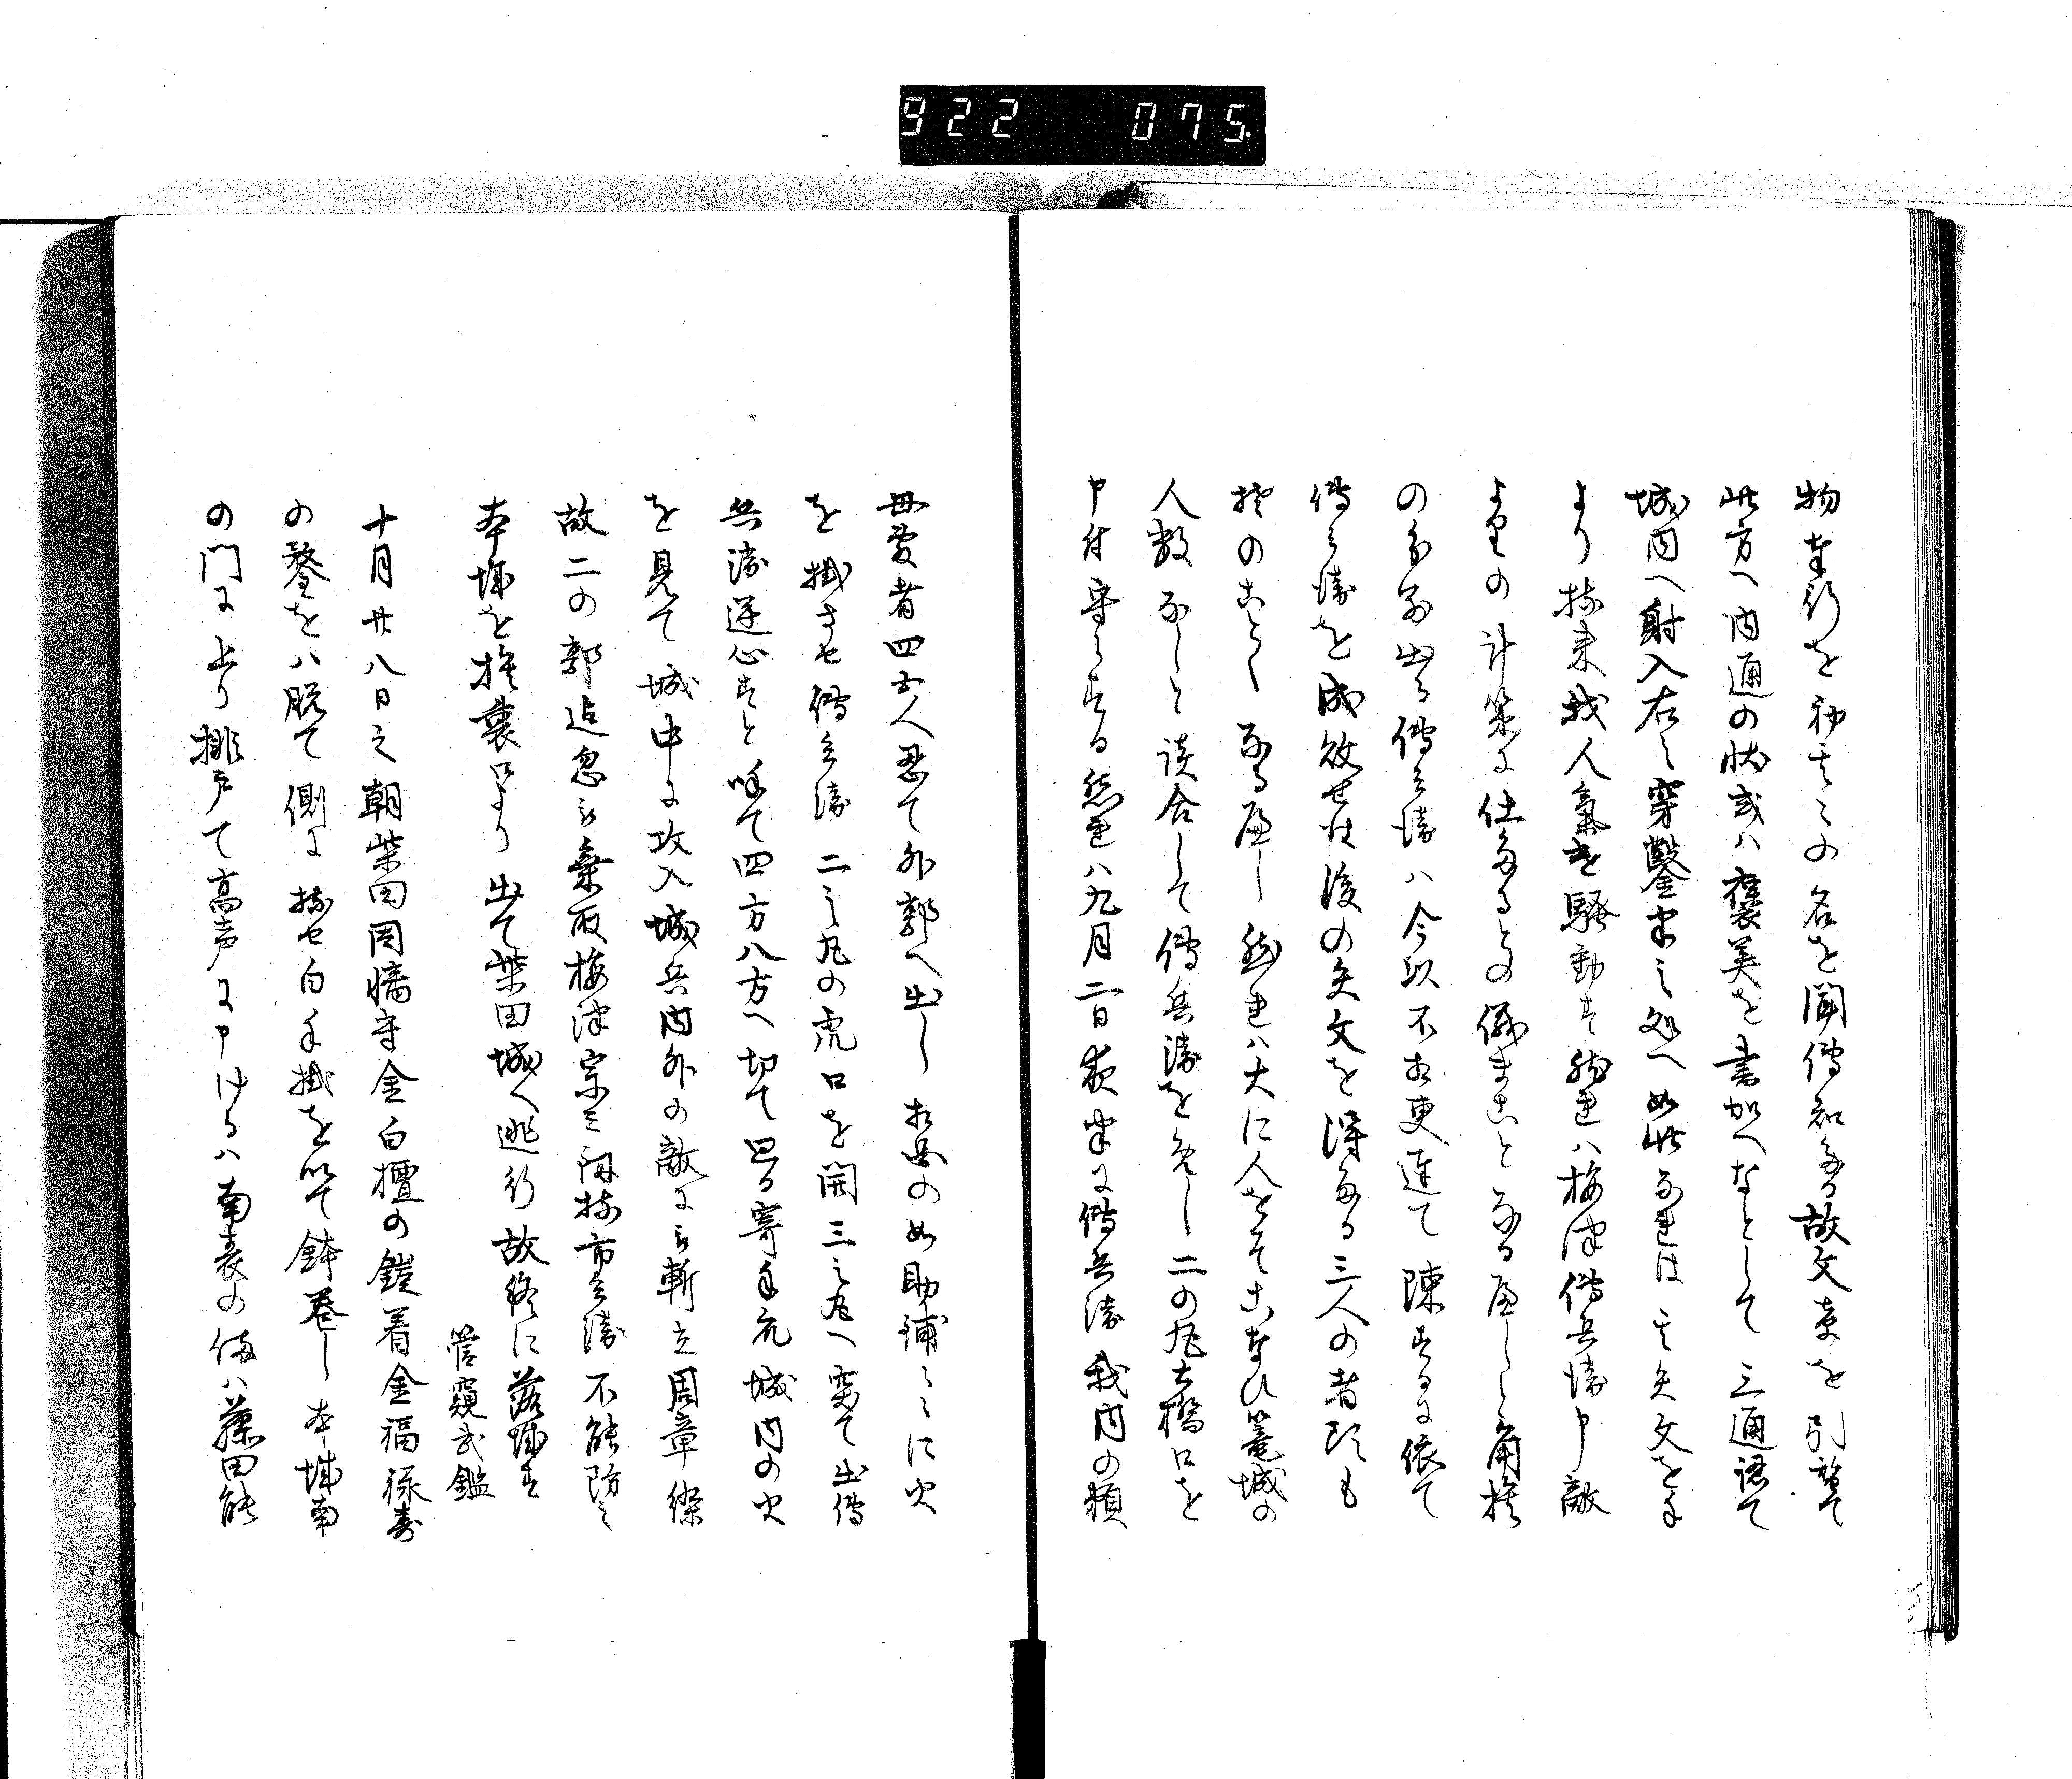 922 075.
物奉行を初其々の名を聞傳知多る故文章を引替て
此方へ内通の状或ハ褒美を書加へなとして三通認て
城内へ射入右之穿鑿半之処へ如此なれは其矢文を手
より持来我人氣を騒動す然れハ梅津傳兵衛申敵
の計策に仕多ると の儀まこと なる へし
の名出る傳兵衛ハ今以不相更達て陳するに依て
傳兵衛を成敗せは後の矢文を得多る三人の者共も
のことく なるへし然れハ大に人をそこなひ篭城の
人数 なしと談合して傳兵衛を免し二の丸土橋口を
申付守らする然れハ九月二日夜半に傳兵衛我内の類
母愛者四五人忍て外郭へ出し相図の如助浦々に火
を掛させ傳兵衛二之丸の虎口を開三之丸へ突て出傳
兵衛逆心すと呼て四方八方へ切て回る寄手亢城内の火
を見て城中に攻入城兵内外の敵に被斬立周章
故二の郭迄忽被乗取梅津宗三 市兵衛不能防之
本城を捨裏口より出て柴田城へ逃行故終に落城す
管窺武鑑
十月廿八日之朝柴田因幡守金白檀の鎧着金福禄寿
の鍪をハ脱て側に持せ白手掛を以て鉢巻し本城南
の門に上り 声て高声に申けるハ南表の備ハ藤田能